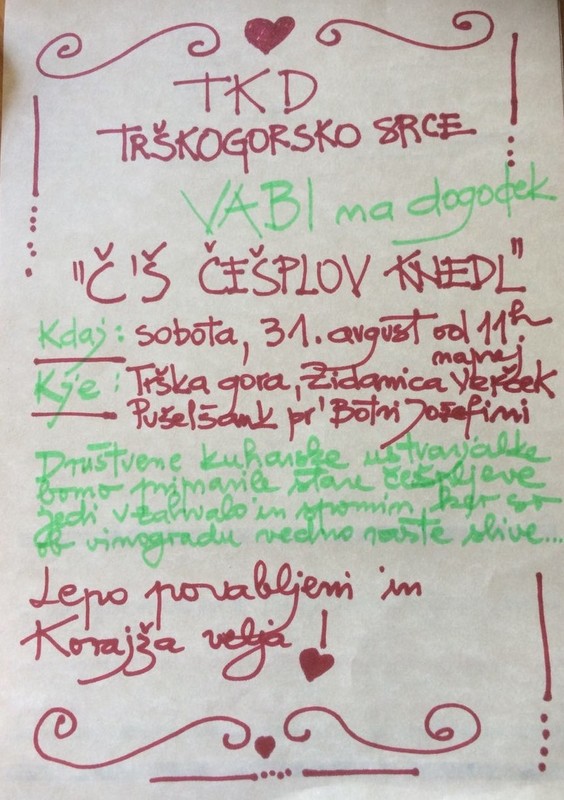 TKD
TRŠKOGORSKO SRCE
VABI na dogodek
"Č'Š ČEŠPLOV KNEDL"
Kdaj: sobota, 31. avgust od 11h naprej
Kje: Trška gora, Zidanica Vepček
Pušelšank pr' Botri Jožefini
Društvene kuharske ustvarjalke
bomo pripravile stare češpljeve
jedi v zahvalo in spomin, ker so
ob vinogradu vedno rasle slive...
Lepo povabljeni in
Korajža velja!